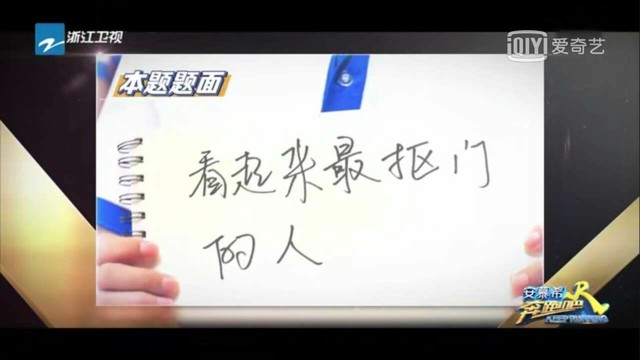 浙江卫视
iQIYI 爱奇艺
本题题面
看起来最抠门
的人
安慕希
奔跑吧
KEEP RUNNING